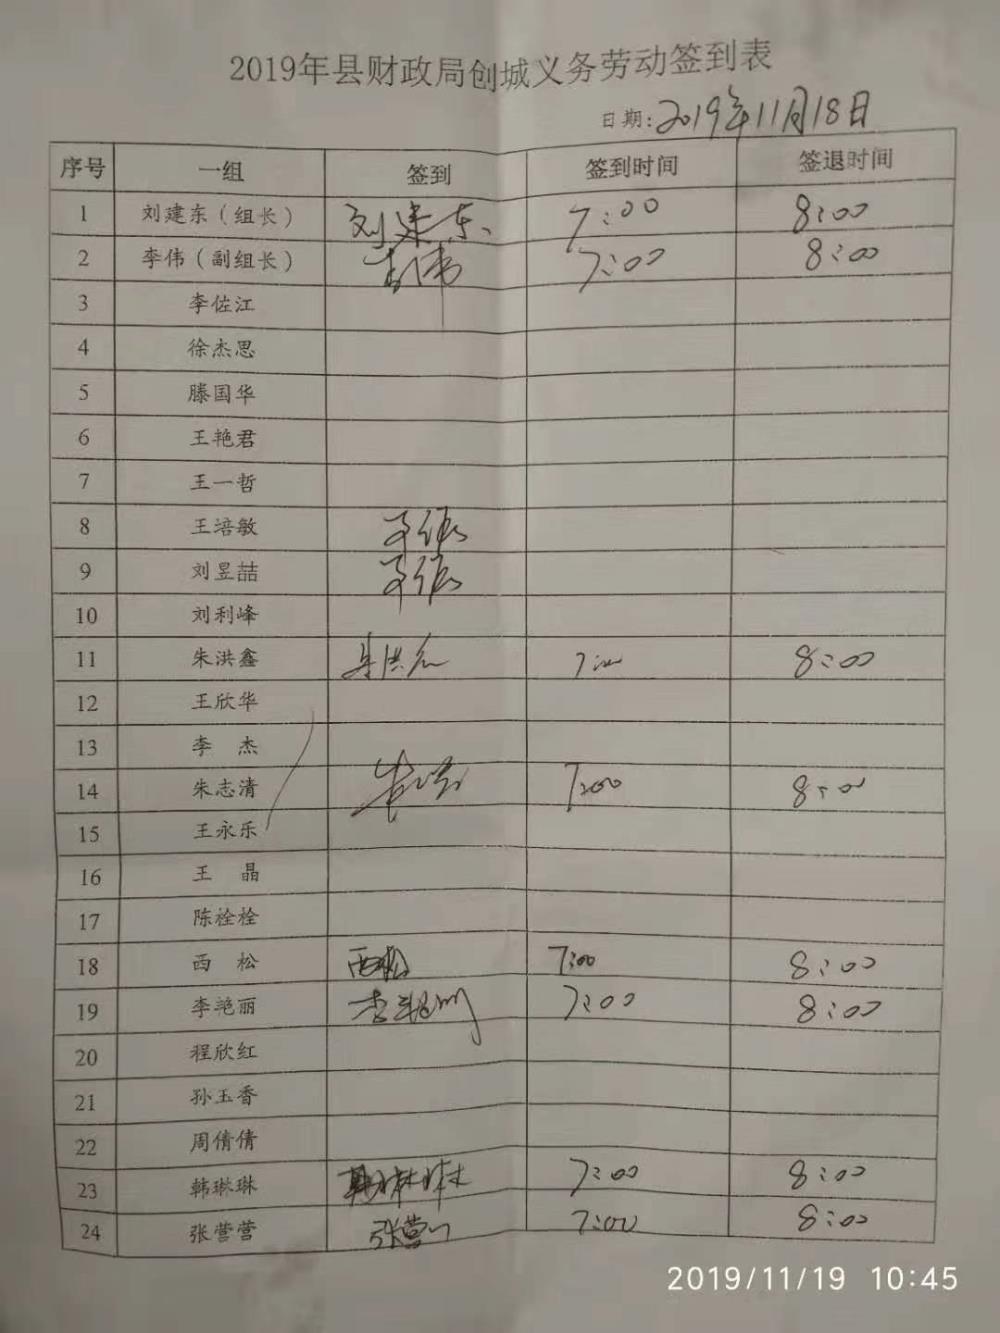 2019年县财政局创城义务劳动签到表
日期:2019年11月18日
序号 一组 签到 签到时间 签退时间
1 刘建东（组长） 刘建东 7:00 8:00
2 李伟（副组长） 李伟 7:00 8:00
3 李佐江
4 徐杰思
5 滕国华
6 王艳君
7 王一哲
8 王培敏
9 刘昱喆
10 刘利峰
11 朱洪鑫 朱洪鑫 7:00 8:00
12 王欣华
13 李 杰
14 朱志清 7:00 8:00
15 王永乐
16 王 晶
17 陈栓栓
18 西 松 西松 7:00 8:00
19 李艳丽 李艳丽 7:00 8:00
20 程欣红
21 孙玉香
22 周倩倩
23 韩琳琳 韩琳琳 7:00 8:00
24 张营营 张营营 7:00 8:00
2019/11/19 10:45